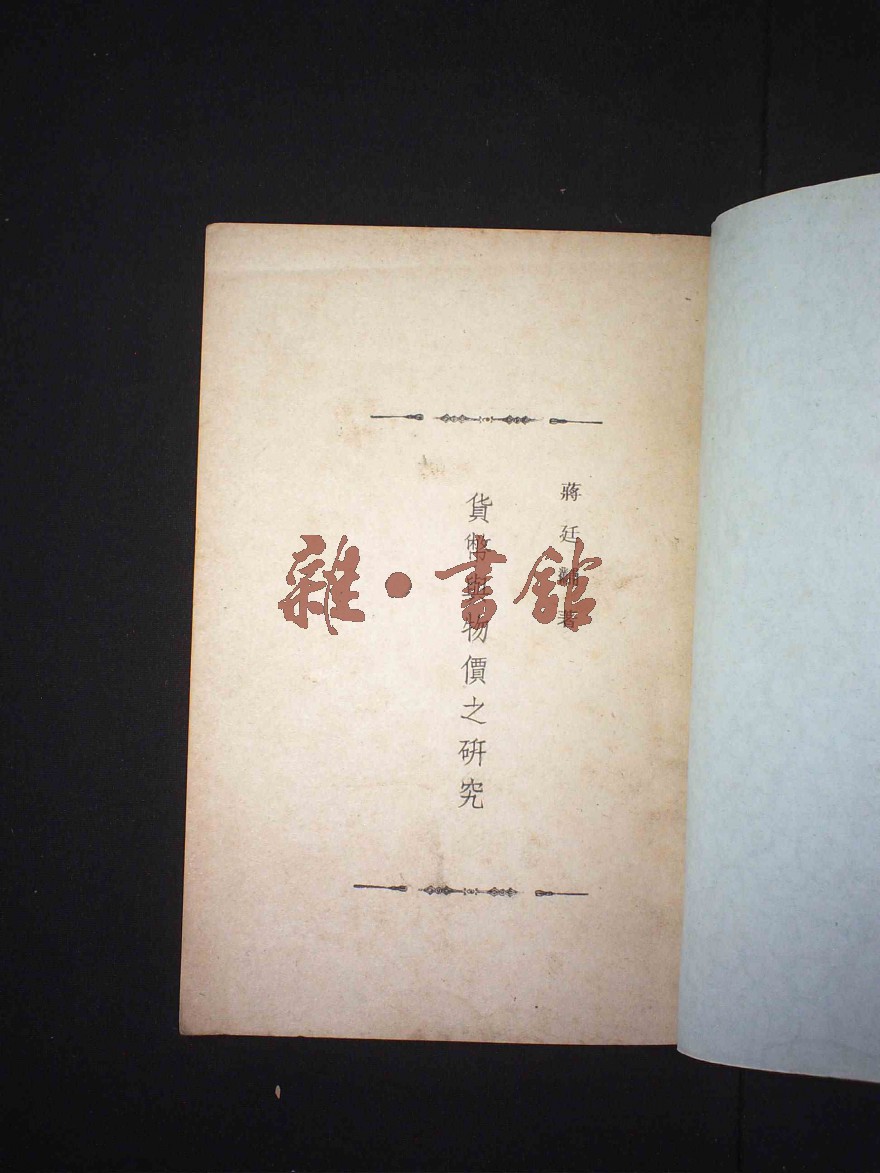 蔣廷黼著
貨幣與物價之研究
雜·書館